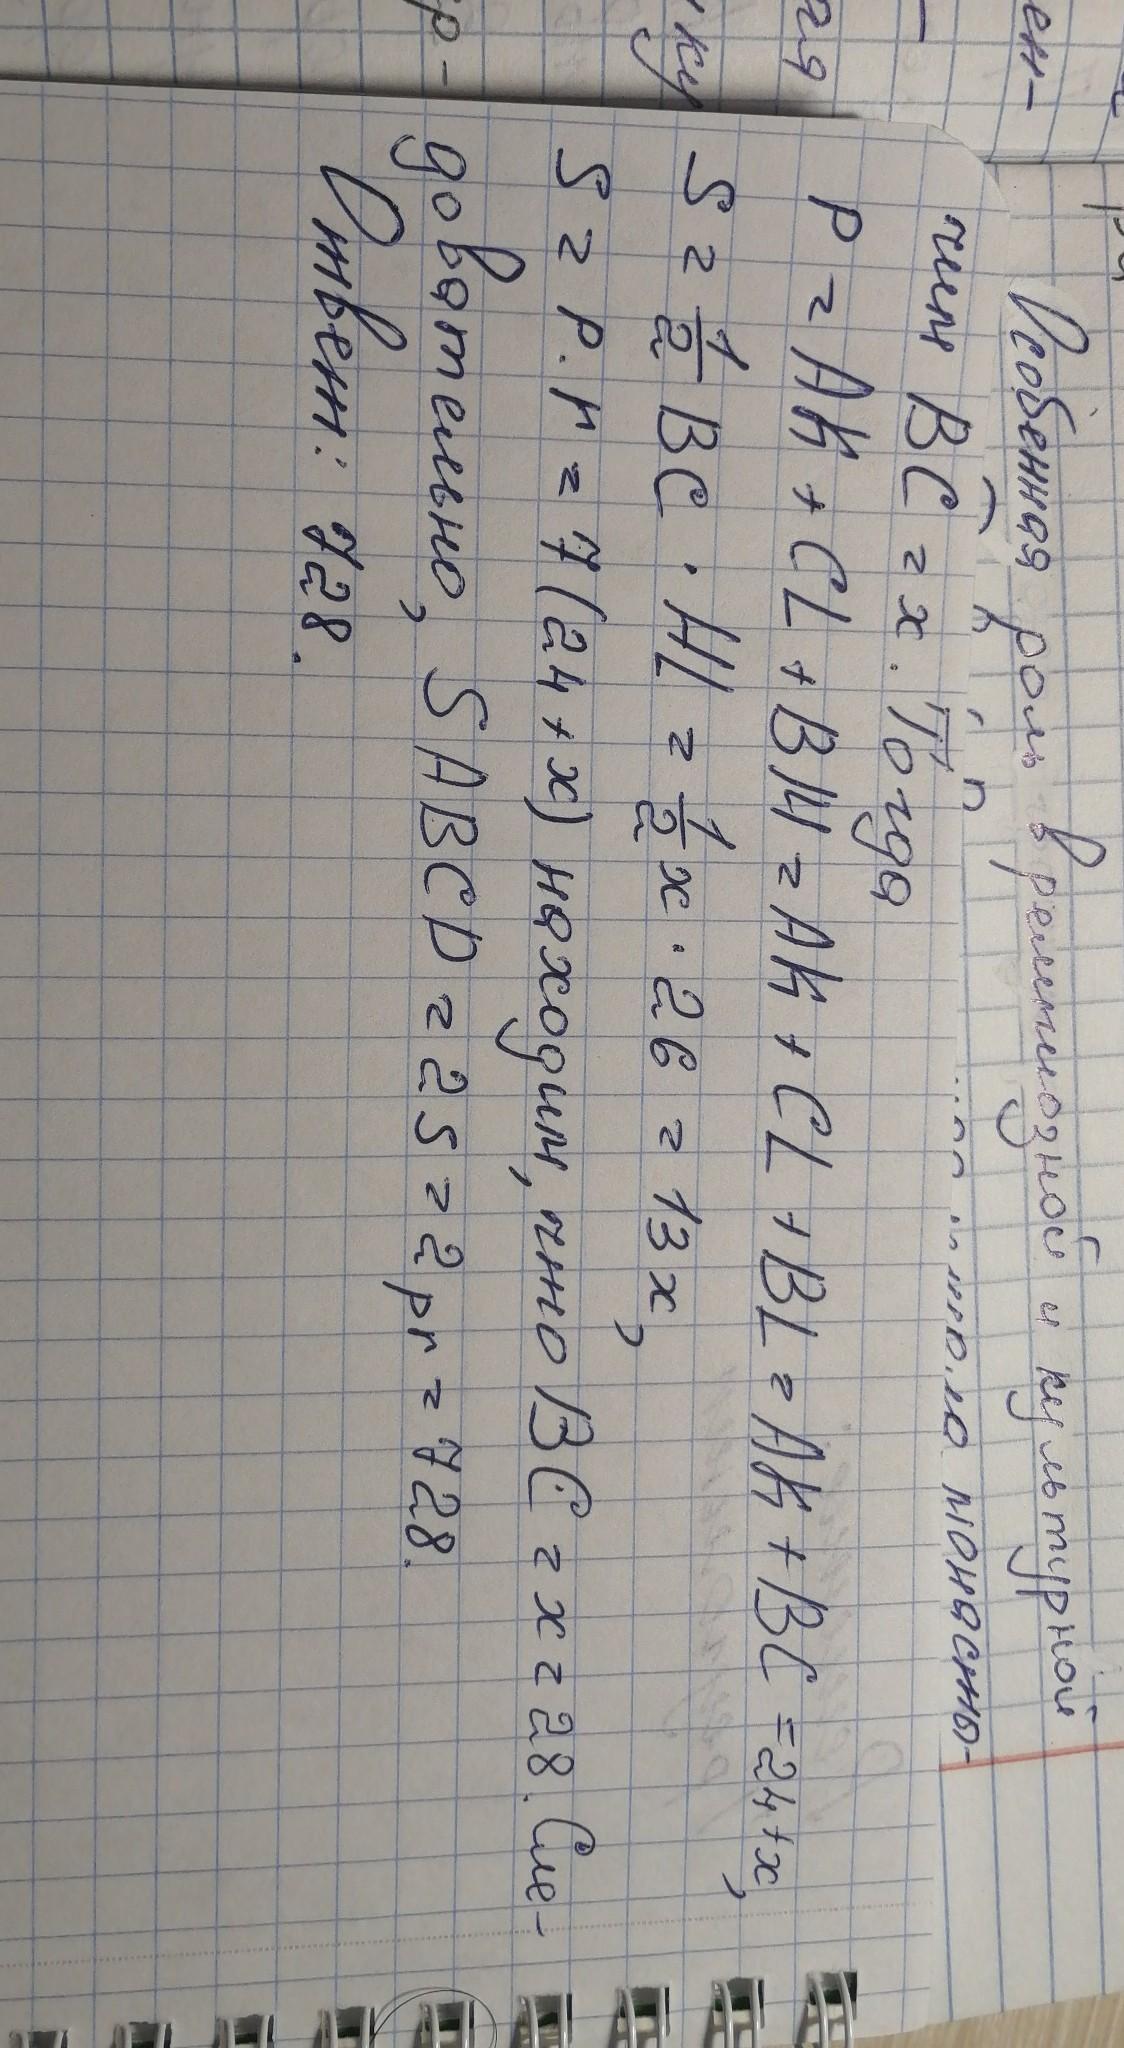 Особенная роль в религиозной и культурной
чим BC = x. Тогда
P = AK + CL + BM = AK + CL + BL = AK + BC = 24 + x,
S = 1/2 BC · HL = 1/2 x · 26 = 13x,
S = p · r = 7(24 + x) находим, что BC = x = 28. Сле-
довательно, SABCD = 2S = 2pr = 728.
Ответ: 728.